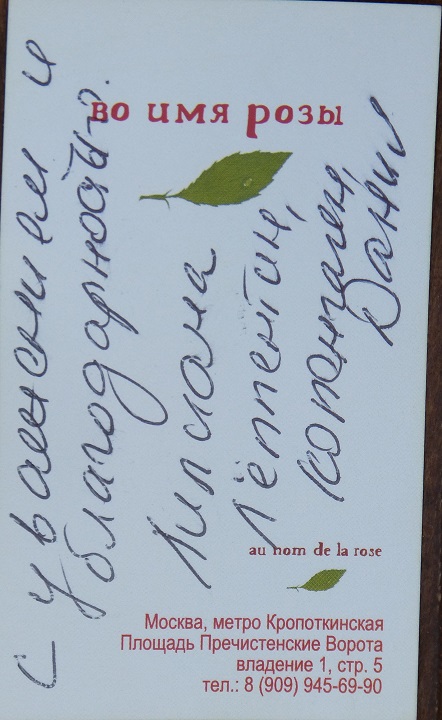 во имя розы
au nom de la rose
Москва, метро Кропоткинская
Площадь Пречистенские Ворота
владение 1, стр. 5
тел.: 8 (909) 945-69-90
С уважением и
благодарностью.
Копенгаген,
Дания